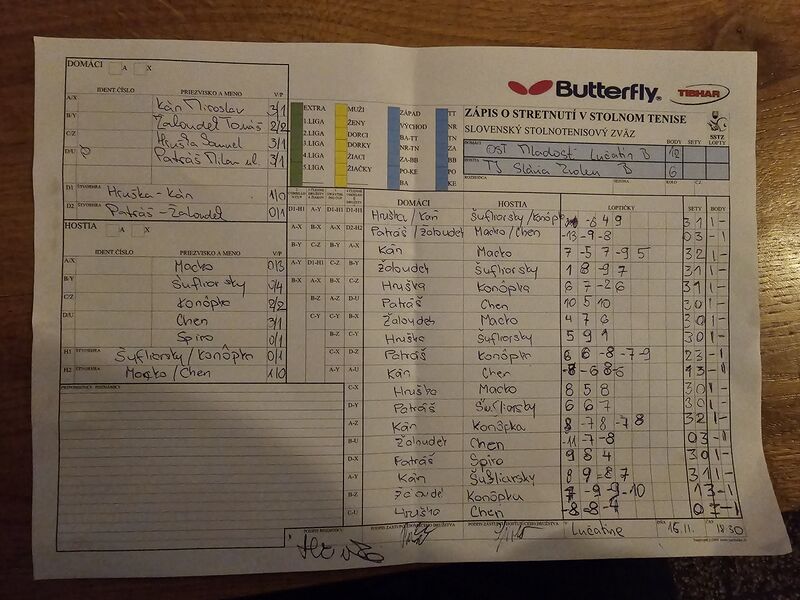 Butterfly
TIBHAR
ZÁPIS O STRETNUTÍ V STOLNOM TENISE
SLOVENSKÝ STOLNOTENISOVÝ ZVÄZ
SSTZ
DOMÁCI A X
IDENT.ČÍSLO PRIEZVISKO A MENO V/P
A/X Kán Miroslav 3/1
B/Y Žaloudek Tomáš 2/2
C/Z Hruška Samuel 3/1
D/U Patráš Milan ml. 3/1
D1 ŠTVORHRA Hruška-Kán 1/0
D2 ŠTVORHRA Patráš-Žaloudek 0/1
HOSTIA A X
IDENT.ČÍSLO PRIEZVISKO A MENO V/P
A/X Macko 0/3
B/Y Šufliarsky 0/4
C/Z Konôpka 2/2
D/U Chen 3/1
Spiro 0/1
H1 ŠTVORHRA Šufliarsky/Konôpka 0/1
H2 ŠTVORHRA Macko/Chen 1/0
PRIPOMIENKY - POZNÁMKY
EXTRA MUŽI ZÁPAD TT
1.LIGA ŽENY VÝCHOD NR
2.LIGA DORCI BA-TT TN
3.LIGA DORKY TN-NR ZA
4.LIGA ŽIACI ZA-BB BB
5.LIGA ŽIAČKY PO-KE PO
BA KE
DOMÁCI OST Mladosť Lučatín B BODY 12 SETY LOPTY
HOSTIA TJ Slávia Zvolen B 6
ROZHODCA SEZÓNA KOLO Č.Z.
DOMÁCI HOSTIA LOPTIČKY SETY BODY
D1-H1 Hruška/Kán Šufliarsky/Konôpka -6 4 9 3 1 1 -
D2-H2 Patráš/Žaloudek Macko/Chen -13 -9 -8 0 3 - 1
Kán Macko 7 -5 7 -9 5 3 2 1 -
Žaloudek Šufliarsky 1 8 -9 7 3 1 1 -
Hruška Konôpka 6 7 -2 6 3 1 1 -
D-U Patráš Chen 10 5 10 3 0 1 -
B-X Žaloudek Macko 4 7 6 3 0 1 -
C-Y Hruška Šufliarsky 5 9 1 3 0 1 -
D-Z Patráš Konôpka 6 6 -8 -7 -9 2 3 - 1
A-U Kán Chen 1 3 - 1
C-X Hruška Macko 8 5 8 3 0 1 -
D-Y Patráš Šufliarsky 6 6 7 3 0 1 -
A-Z Kán Konôpka 8 -7 8 -7 8 3 2 1 -
B-U Žaloudek Chen -11 -7 -8 0 3 - 1
D-X Patráš Spiro 9 8 4 3 0 1 -
A-Y Kán Šufliarsky 8 9 -8 7 3 1 1 -
B-Z Žaloudek Konôpka -9 -9 -10 1 3 - 1
C-U Hruška Chen -8 -8 -4 0 3 - 1
PODPIS ROZHODCU PODPIS ZÁSTUPCU DOMÁCEHO DRUŽSTVA PODPIS ZÁSTUPCU HOSŤUJÚCEHO DRUŽSTVA V Lučatíne DŇA 16.11. ČAS 12.30